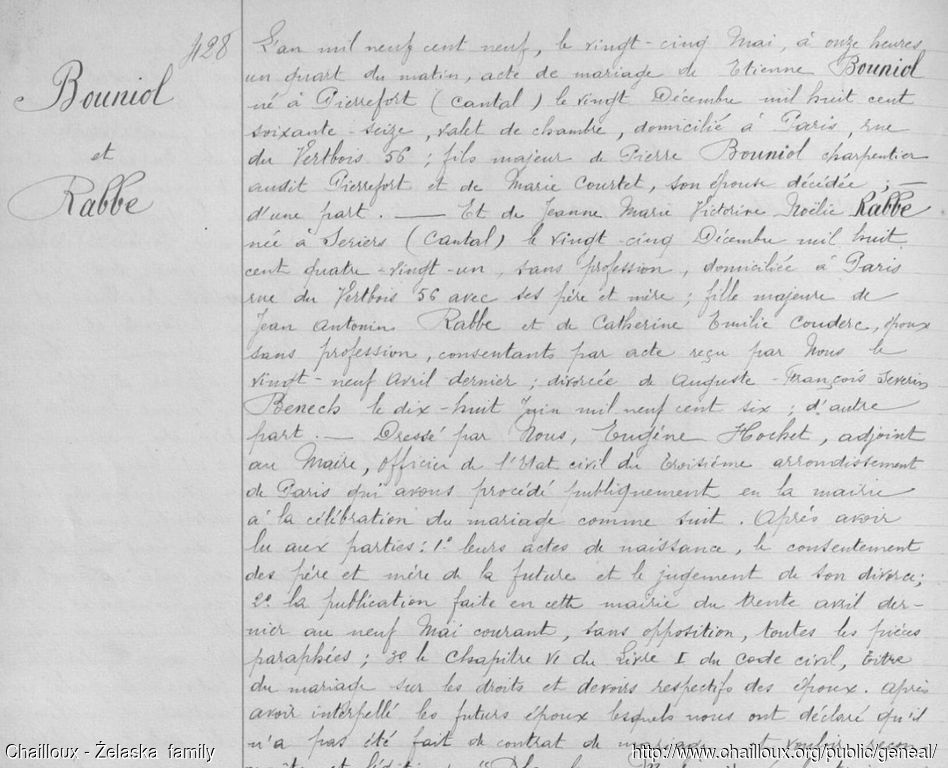 428
Bouniol
et
Rabbe
L'an mil neuf cent neuf, le vingt-cinq Mai, à onze heures
un quart du matin, acte de mariage de Etienne Bouniol
né à Pierrefort (Cantal) le vingt Décembre mil huit cent
soixante-seize, valet de chambre, domicilié à Paris, rue
du Vertbois 56 ; fils majeur de Pierre Bouniol charpentier
audit Pierrefort et de Marie Courtet, son épouse décédée ; —
d'une part. — Et de Jeanne Marie Victorine Noélie Rabbe
née à Seriers (Cantal) le vingt-cinq Décembre mil huit
cent quatre-vingt-un, sans profession, domiciliée à Paris
rue du Vertbois 56 avec ses père et mère ; fille majeure de
Jean Antonin Rabbe et de Catherine Emilie Couderc, époux
sans profession, consentants par acte reçu par Nous le
vingt-neuf Avril dernier ; divorcée de Auguste-François Severin
Benech le dix-huit Juin mil neuf cent six ; d'autre
part. — Dressé par Nous, Eugène Hochet, adjoint
au Maire, officier de l'Etat civil du troisième arrondissement
de Paris qui avons procédé publiquement en la mairie
à la célébration du mariage comme suit. Après avoir
lu aux parties : 1° leurs actes de naissance, le consentement
des père et mère de la future et le jugement de son divorce ;
2° la publication faite en cette mairie du trente avril der-
nier au neuf Mai courant, sans opposition, toutes les pièces
paraphées ; 3° le chapitre VI du Livre I du code civil, titre
du mariage sur les droits et devoirs respectifs des époux. Après
avoir interpellé les futurs époux lesquels nous ont déclaré qu'il
n'a pas été fait de contrat de mariage
Chailloux - Želaska family
http://www.chailloux.org/public/geneal/